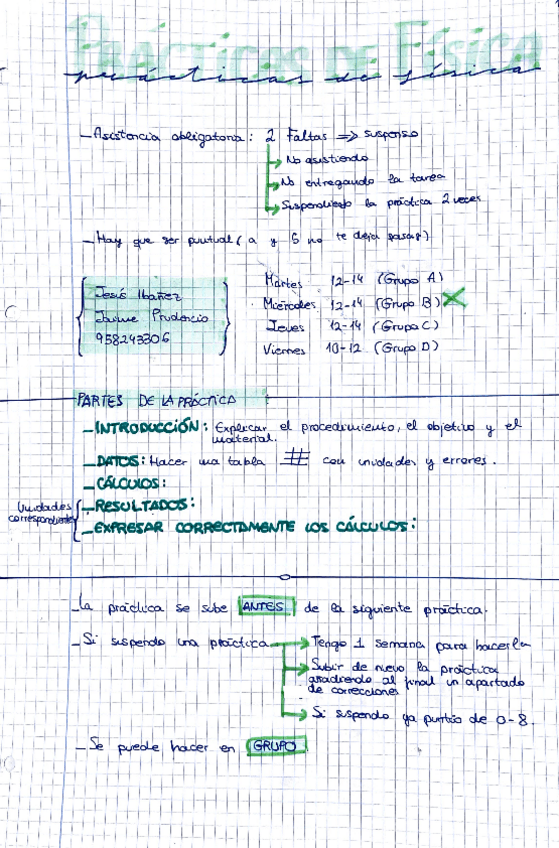 PRÁCTICAS DE FÍSICA
prácticas de física
- Asistencia obligatoria: 2 Faltas => suspenso
No asistiendo
No entregando la tarea
Suspendiendo la práctica 2 veces
- Hay que ser puntual ( a y 5 no te deja pasar)
Jesús Ibañez
Jaime Prudencio
958243306
Martes 12-14 (Grupo A)
Miércoles 12-14 (Grupo B) X
Jueves 12-14 (Grupo C)
Viernes 10-12 (Grupo D)
PARTES DE LA PRÁCTICA
- INTRODUCCIÓN: Explicar el procedimiento, el objetivo y el
material.
- DATOS: Hacer una tabla con unidades y errores.
- CÁLCULOS:
Unidades
correspondientes
- RESULTADOS:
- EXPRESAR CORRECTAMENTE LOS CÁLCULOS:
- La práctica se sube ANTES de la siguiente práctica.
- Si suspendo una práctica
Tengo 1 semana para hacerla
Subir de nuevo la práctica
añadiendo al final un apartado
de correcciones
Si suspendo ya puntúo de 0-8.
- Se puede hacer en GRUPO